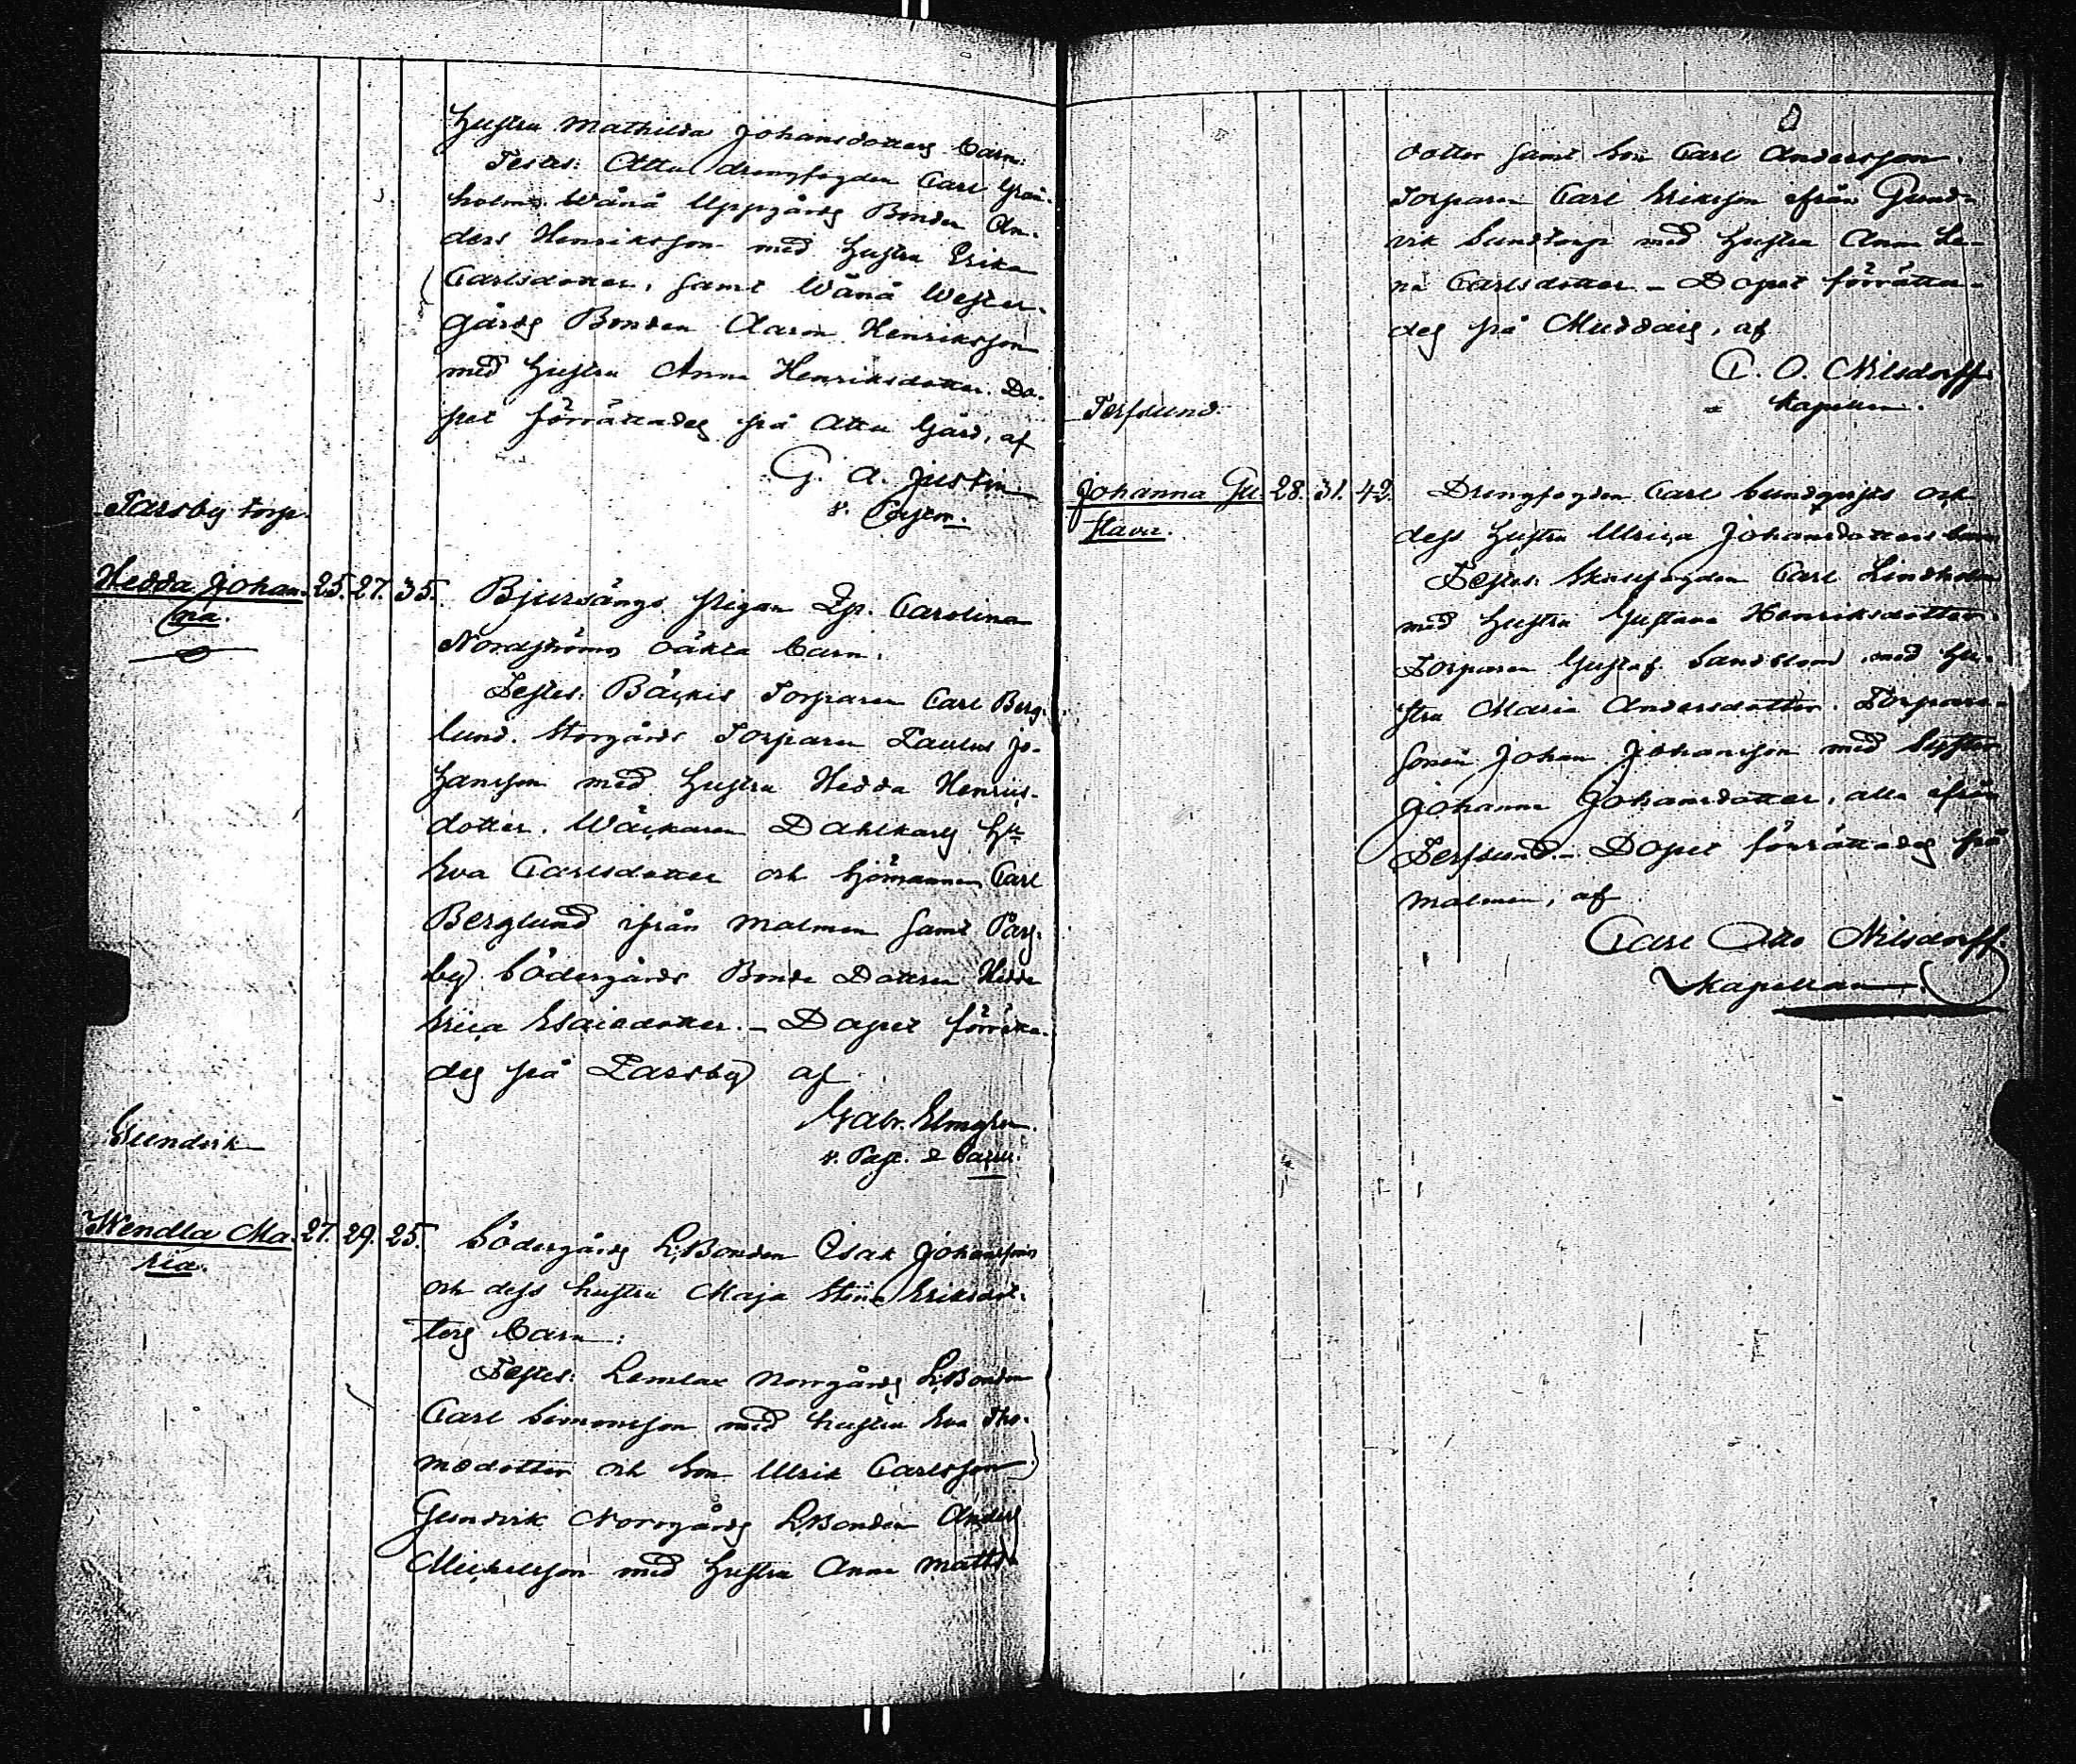 Hustru Mathilda Johansdotters barn.
Testes: Attu drengfogden Carl Grön-
holm. Wånå Uppgårds Bonden An-
ders Henriksson med hustru Erika
Carlsdotter, samt Wånå Wester-
gårds Bonden Aaron Henriksson
med hustru Anna Henriksdotter. Do-
pet förrättades på Attu Gård, af
G. A. Justin
v. Pastor.
Parsby torp.
Hedda Johan- 25. 27. 35. Bjursängs pigan Carolina
na.
Nordströms oäkta barn.
Testes: Torparen Carl Berg-
lund. Storgårds Torparen Paulus Jo-
hansson med hustru Hedda Henriks-
dotter. Dahlkarls Hu
Eva Carlsdotter och Sjömannen Carl
Berglund ifrån Malmen samt Pars-
by Södergårds Bonde Dottren Hedda
Erica Esaiedotter. - Dopet förrätta-
des på Parsby af
Gabr. Elmgren.
v. Past.
Gundvik
Wendla Ma- 27. 29. 25. Södergårds L.Bonden Isak Johanssons
ria.
och dess hustru Maja Stina Eriksdot-
ters barn:
Testes: Lemlax Norrgårds L.Bonden
Carl Simonsson med hustru Eva Tho-
medotter och son Ulrik Carlsson
Gundvik Norrgårds L.Bonden Anders
Mickelsson med hustru Anna Matts-
dotter samt son Carl Andersson.
Torparen Carl Eriksson ifrån Gund-
vik Sundtorp med hustru Anna Le-
na Carlsdotter. - Dopet förrätta-
des på Muddais, af
C. O. Nilsdorff
Kapellan.
Terfsund.
Johanna Gu- 28. 31. 42. Drengfogden Carl Lundqvists och
stava.
dess hustru Ulrica Johansdotters barn
Testes: Carl Lindholm
med hustru Gustava Henriksdotter.
Torparen Gustaf Sandblom med hu-
stru Maria Andersdotter. Torpare-
sonen Johan Johansson med Syster
Johanna Johansdotter, alla ifrån
Terfsund. - Dopet förrättades på
Malmen, af
Carl Otto Nilsdorff.
Kapellan.